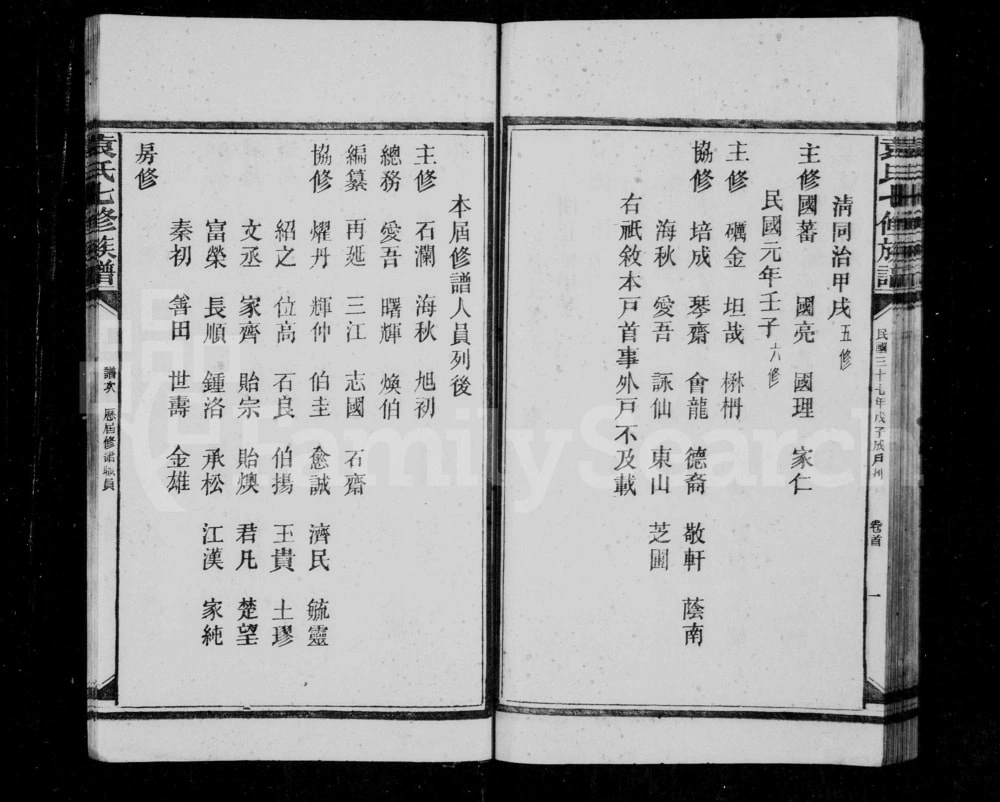 袁氏七修族譜
民國三十七年戊子
卷首
一
清同治甲戌五修
主修 國蕃 國亮 國理 家仁
民國元年壬子六修
主修 礪金 坦哉 楙枬
協修 培成 琴齋 會龍 德裔 敬軒 蔭南
海秋 愛吾 詠仙 東山 芝圃
右祇敘本戶首事外戶不及載
本屆修譜人員列後
主修 石瀾 海秋 旭初
總務 愛吾 曙輝 煥伯
編纂 再延 三江 志國 石齋
協修 燿丹 輝仲 伯圭 愈誠 濟民 毓靈
紹之 位高 石良 伯揚 玉貴 士璆
文丞 家齊 貽宗 貽燠 君凡 楚望
富榮 長順 鍾洛 承松 江漢 家純
秦初 善田 世壽 金雄
房修
袁氏七修族譜
譜次 歷屆修譜職員
FamilySearch